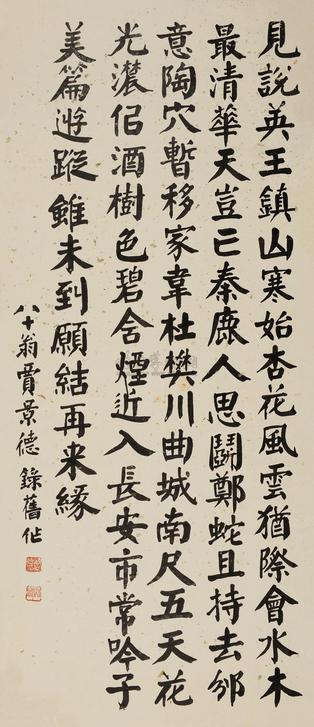 見說英王鎮山寒始杏花風雲猶際會水木
最清華天豈亡秦鹿人思鬪鄭蛇且持去邠
意陶穴暫移家韋杜樊川曲城南尺五天花
光濃佀酒樹色碧含煙近入長安市常吟子
美篇遊蹤雖未到願結再来緣
八十翁賈景德錄舊作